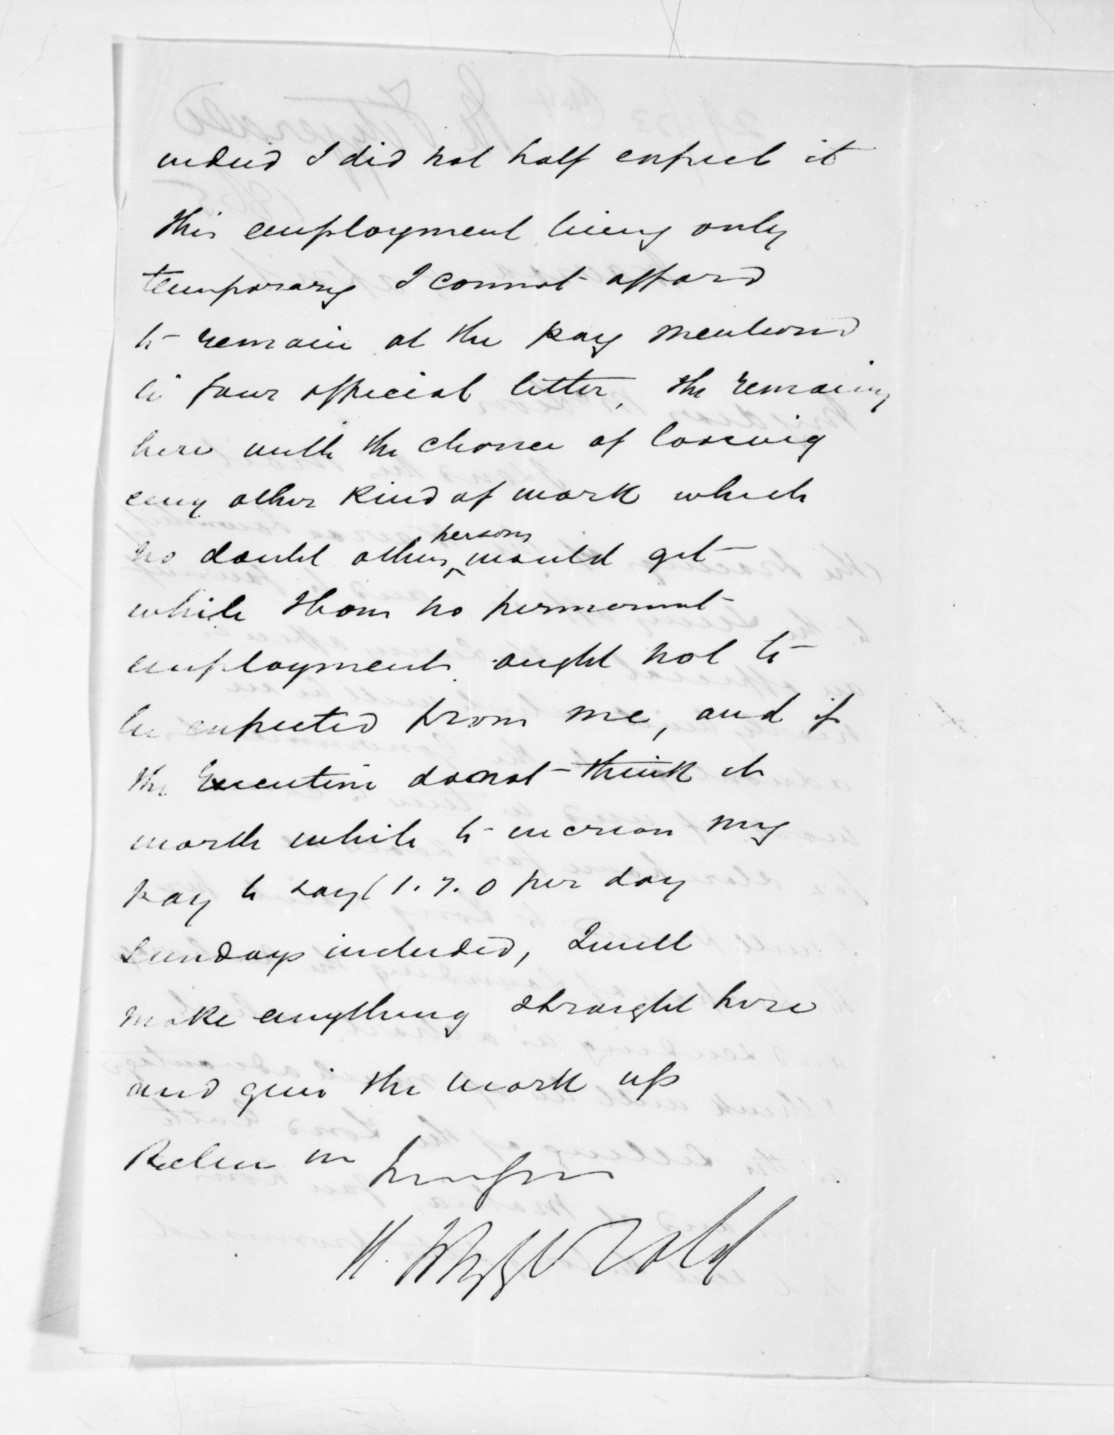 indeed I did not half expect it
this employment being only
temporary I cannot afford
to remain at the pay mentiond
in your official letter, the remaing
here with the chance of loosing
any other kind of work which
no doubt other persons would get
while I have no permanent
employment ought not to
be expected from me, and if
the Executive do not think it
worth while to increase my
pay to say (1.7.0 per day
Sundays included, I will
make anything straight here
and give the work up
Believe me
H. Fitzgerald